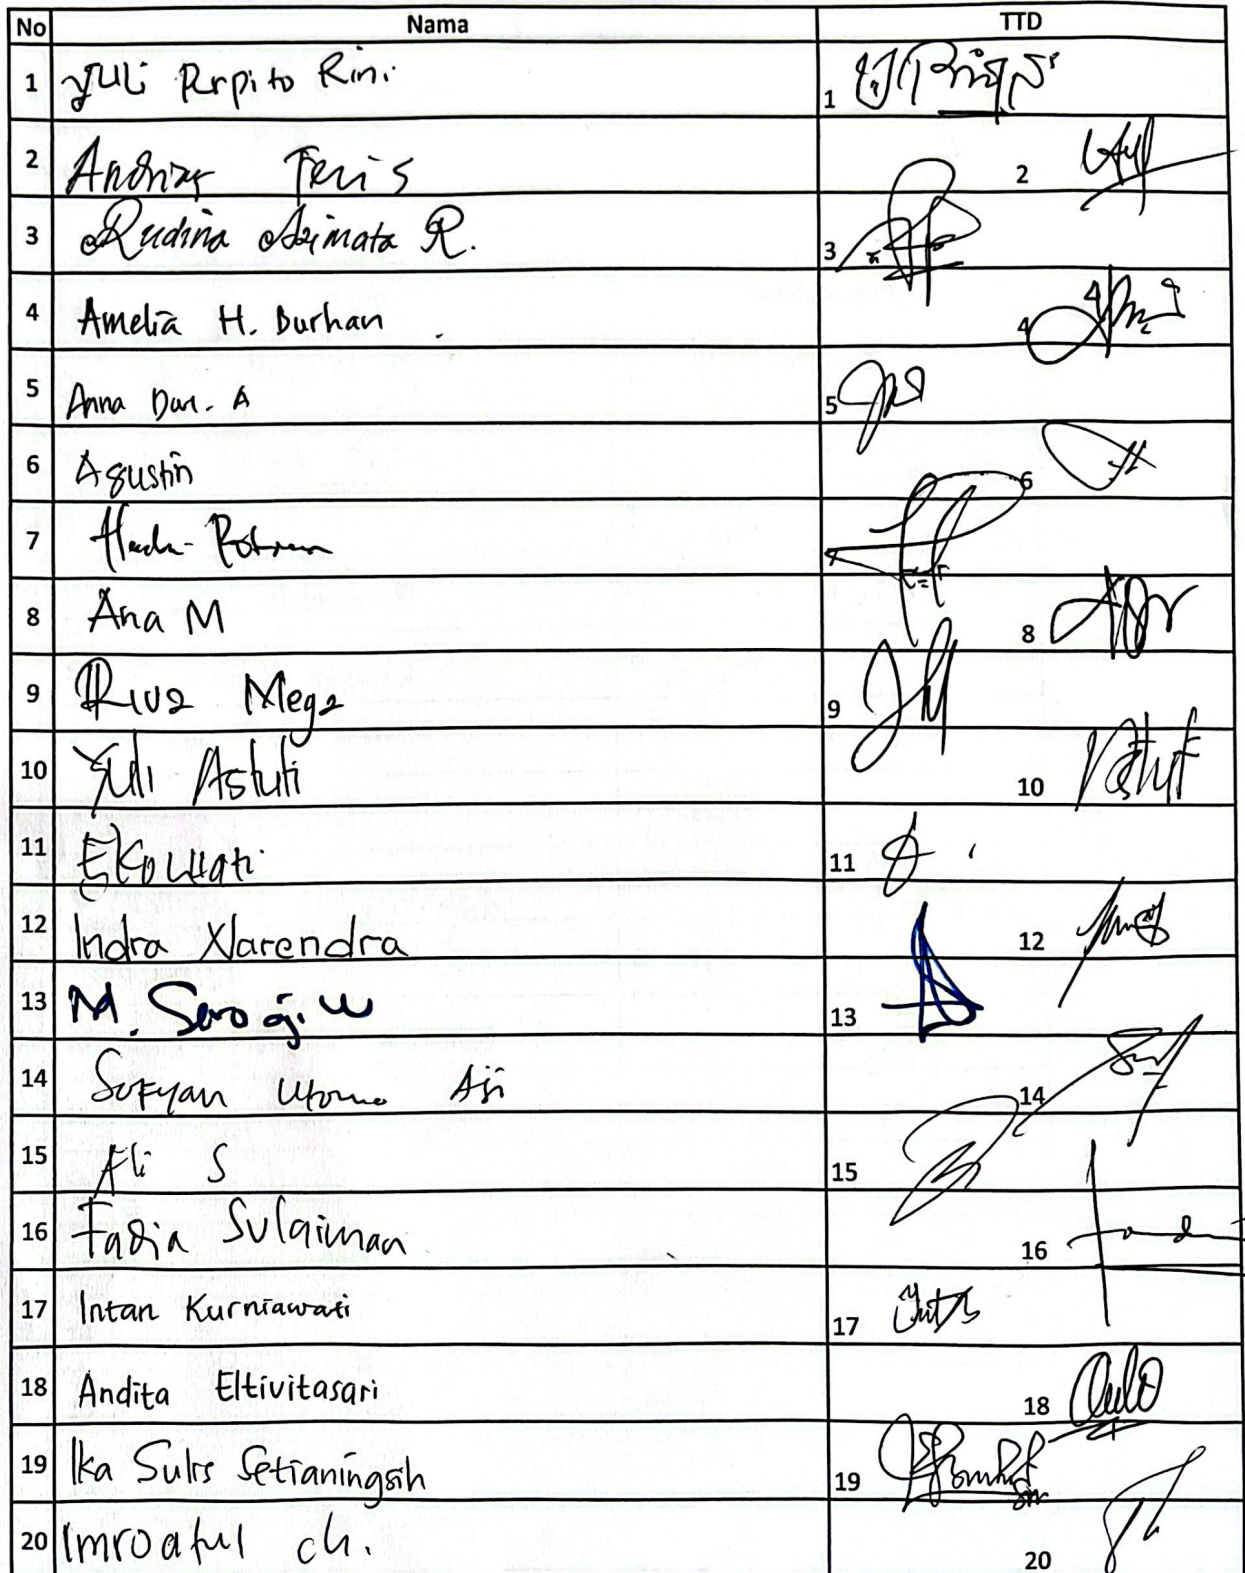 No Nama TTD
1 Yuli Puspito Rini 1
2 Feris 2
3 Rudina Azimata R. 3
4 Amelia H. Burhan 4
5 Anna Dwi. A 5
6 Agustin 6
7
8 Ana M 8
9 Riva Mega 9
10 Yuli Astuti 10
11 Ekowati 11
12 Indra Narendra 12
13 M. Suroji W 13
14 Sofyan Utomo Aji 14
15 Ali S 15
16 Fadia Sulaiman 16
17 Intan Kurniawati 17
18 Andita Eltivitasari 18
19 Ika Sulis Setianingsih 19
20 Imroatul ch. 20